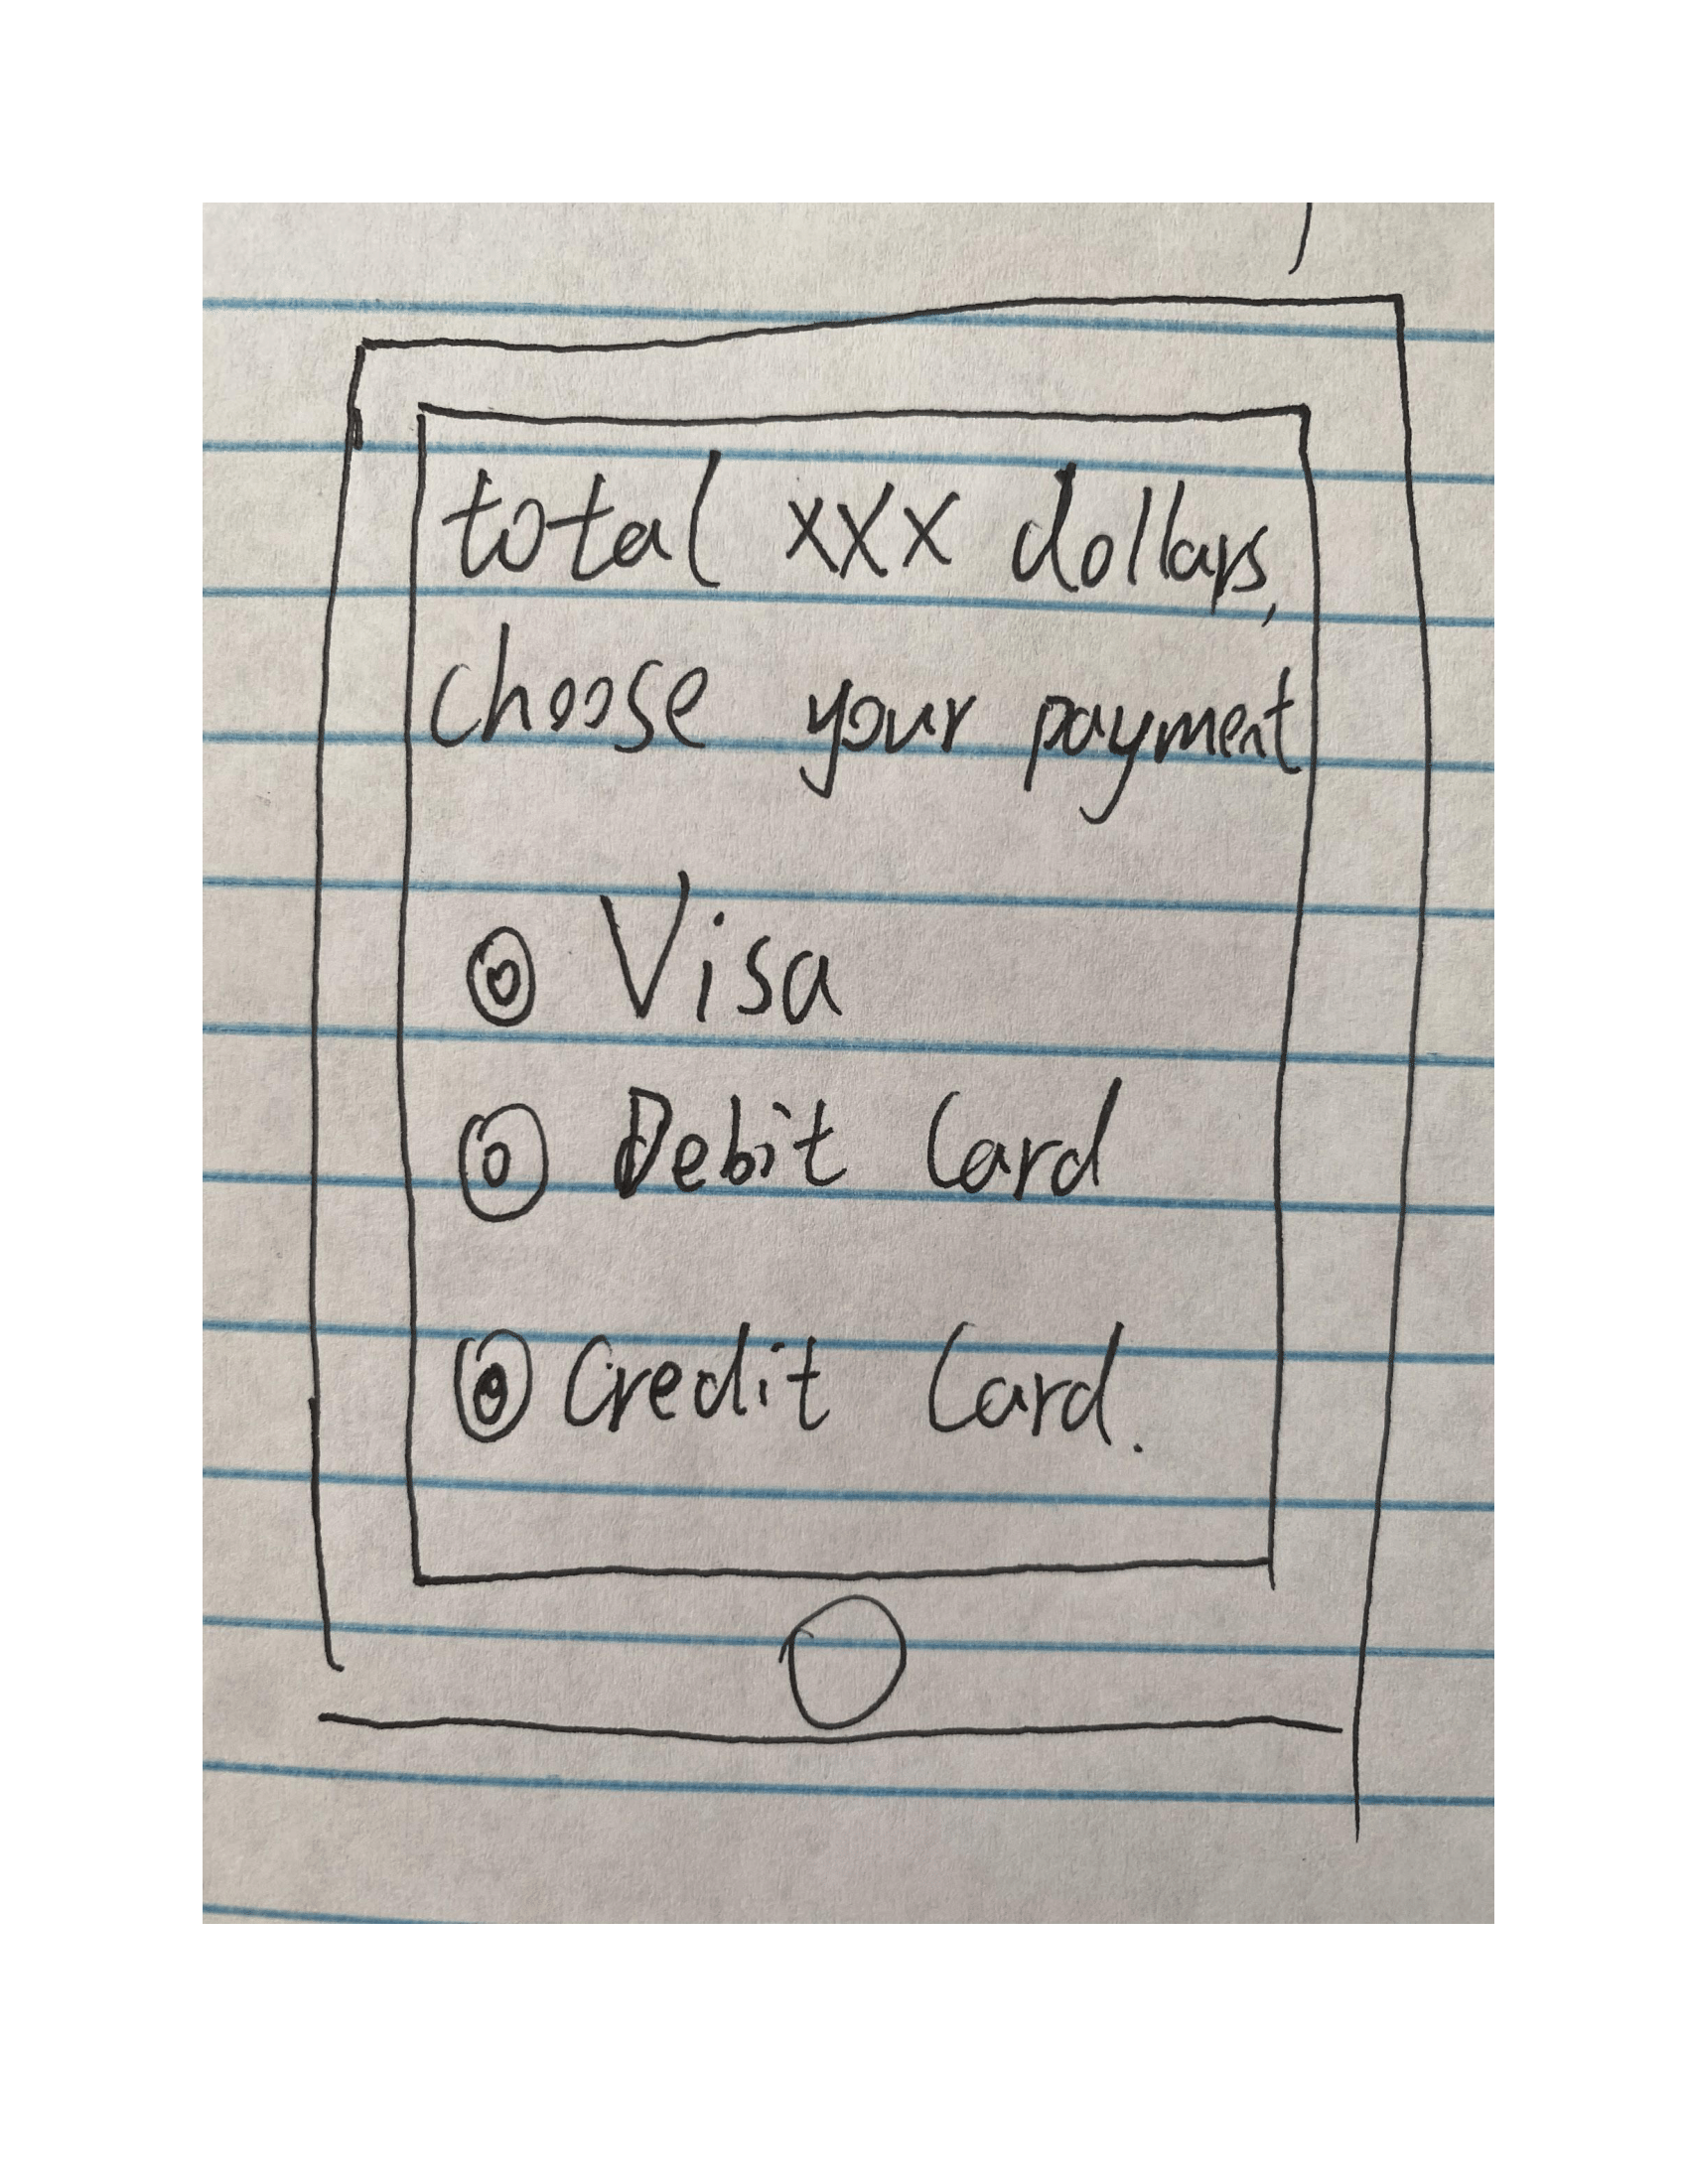 total xxx dollars,
choose your payment
Visa
Debit Card
Credit Card.